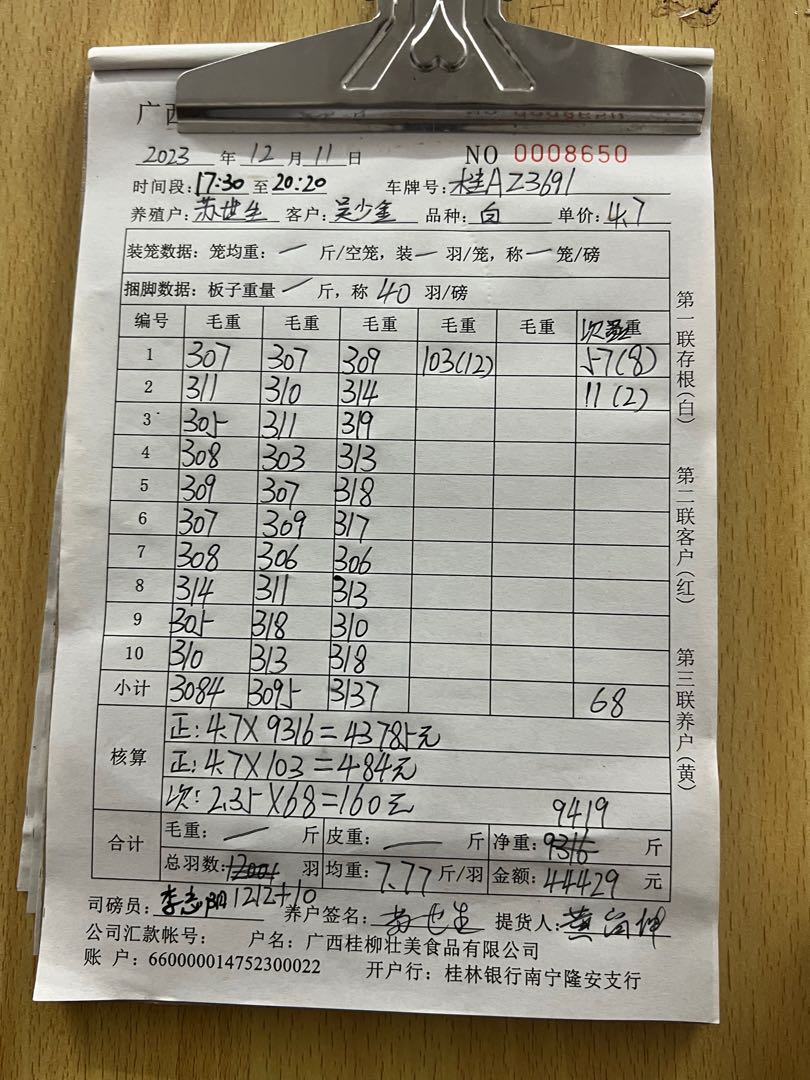 广西
2023 年 12 月 11 日 NO 0008650
时间段: 17:30 至 20:20 车牌号: 桂AZ3691
养殖户: 苏世生 客户: 吴少金 品种: 白 单价: 4.7
装笼数据: 笼均重: 一 斤/空笼, 装 一 羽/笼, 称 一 笼/磅
捆脚数据: 板子重量 一 斤, 称 40 羽/磅
编号 毛重 毛重 毛重 毛重 毛重 次重
1 307 307 309 103(12) 57(8)
2 311 310 314 11(2)
3 305 311 319
4 308 303 313
5 309 307 318
6 307 309 317
7 308 306 306
8 314 311 313
9 305 318 310
10 310 313 318
小计 3084 3095 3137 68
核算
正: 4.7×9316=43785元
正: 4.7×103=484元
次: 2.35×68=160元
9419
合计 毛重: 一 斤 皮重: 一 斤 净重: 9316 斤
总羽数: 羽 均重: 7.77 斤/羽 金额: 44429 元
1212+10
司磅员: 李志阳 养户签名: 苏世生 提货人: 黄
公司汇款帐号: 户名: 广西桂柳壮美食品有限公司
账 户: 660000014752300022 开户行: 桂林银行南宁隆安支行
第一联存根(白)
第二联客户(红)
第三联养户(黄)